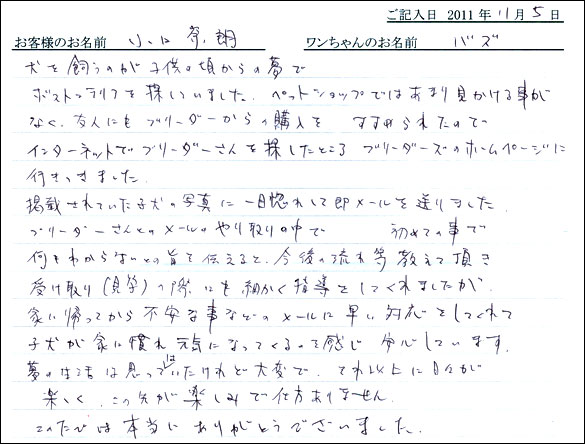 ご記入日 2011年 11月 5日
お客様のお名前 小口 奈朗 ワンちゃんのお名前 バズ
犬を飼うのが子供の頃からの夢で
ボストンテリアを探していました。ペットショップではあまり見かける事が
なく、友人にもブリーダーからの購入を すすめられたので
インターネットでブリーダーさんを探したところ ブリーダーズのホームページに
行きつきました。
掲載されていた子犬の写真に一目惚れして即メールを送りました。
ブリーダーさんとのメールのやり取りの中で 初めての事で
何もわからないとの旨を伝えると、今後の流れ等教えて頂き
受け取り(見学)の際にも細かく指導をしてくれましたが、
家に帰ってから不安な事などのメールに早い対応をしてくれて
子犬が家に慣れ元気になってくるのを感じ安心しています。
夢の生活は思っていたはけれど大変で、それ以上に日々が
楽しく、この先が楽しみで仕方ありません。
このたびは本当にありがとうございました。